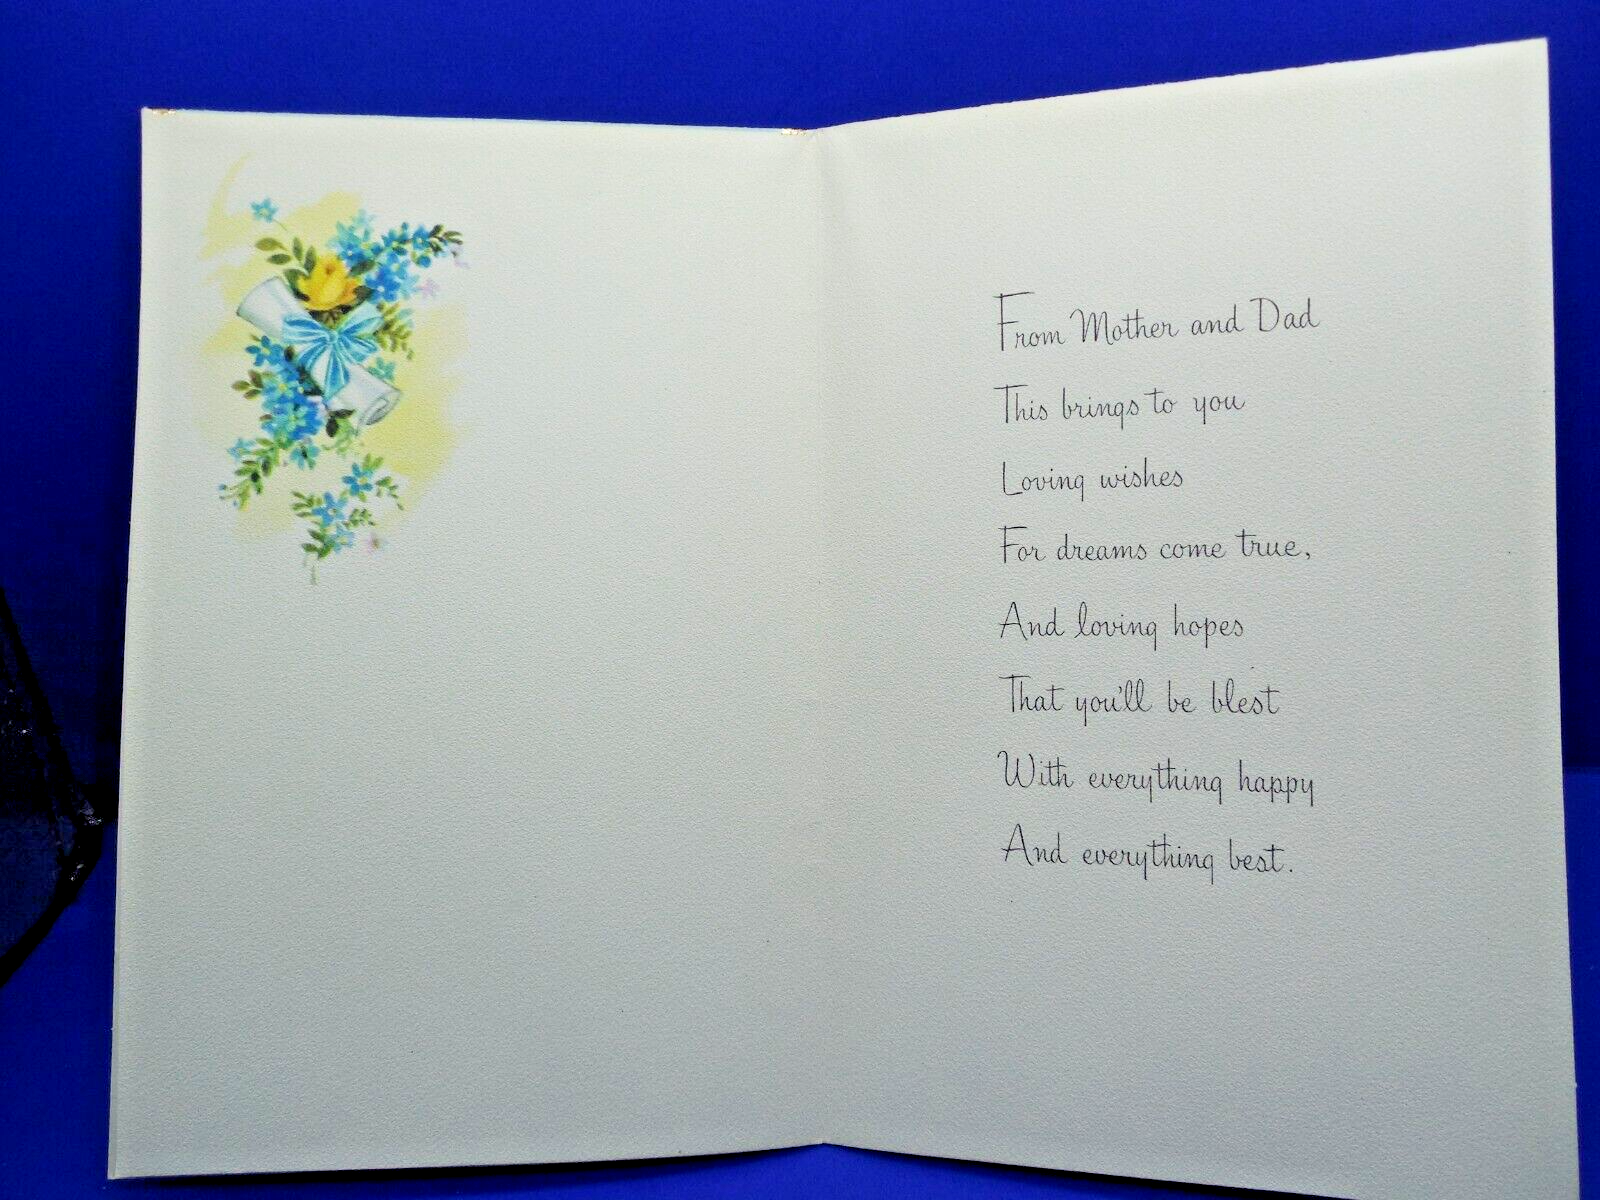 From Mother and Dad
This brings to you
Loving wishes
For dreams come true,
And loving hopes
That you'll be blest
With everything happy
And everything best.